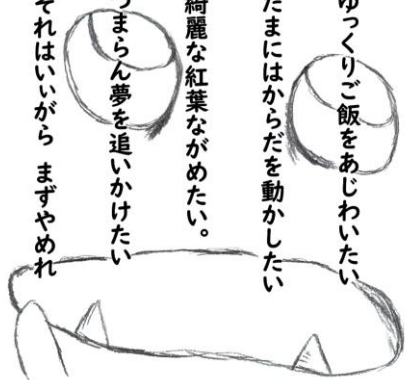 ゆっくりご飯をあじわいたい
たまにはからだを動かしたい
綺麗な紅葉ながめたい。
つまらん夢を追いかけたい
それはいぃがら まずやめれ